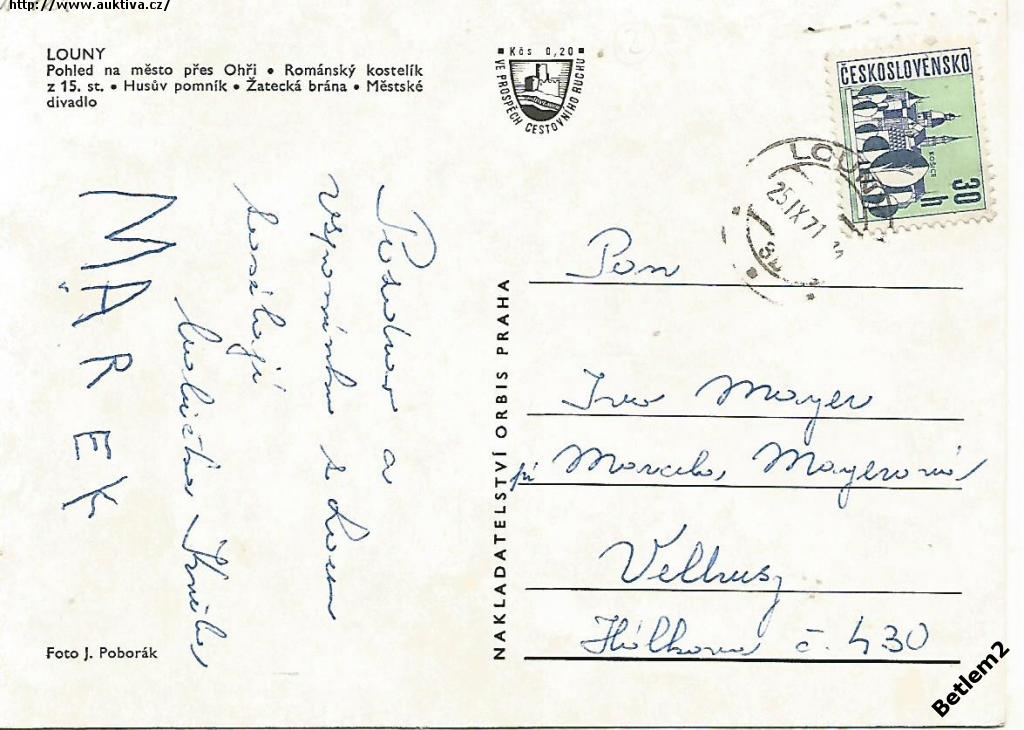 http://www.auktiva.cz/
LOUNY
Pohled na město přes Ohři • Románský kostelík
z 15. st. • Husův pomník • Žatecká brána • Městské
divadlo
Kčs 0,20
VE PROSPĚCH CESTOVNÍHO RUCHU
ČESKOSLOVENSKO
KOŠICE
30
h
LOUNY
25.IX.71
Pozdrav a
vzpomínku z Loun
posílají
MAREK
NAKLADATELSTVÍ ORBIS PRAHA
Pan
Ivo Mayer
Marcela Mayerová
Veltrusy
Hálkova č. 430
Foto J. Poborák
Betlem2